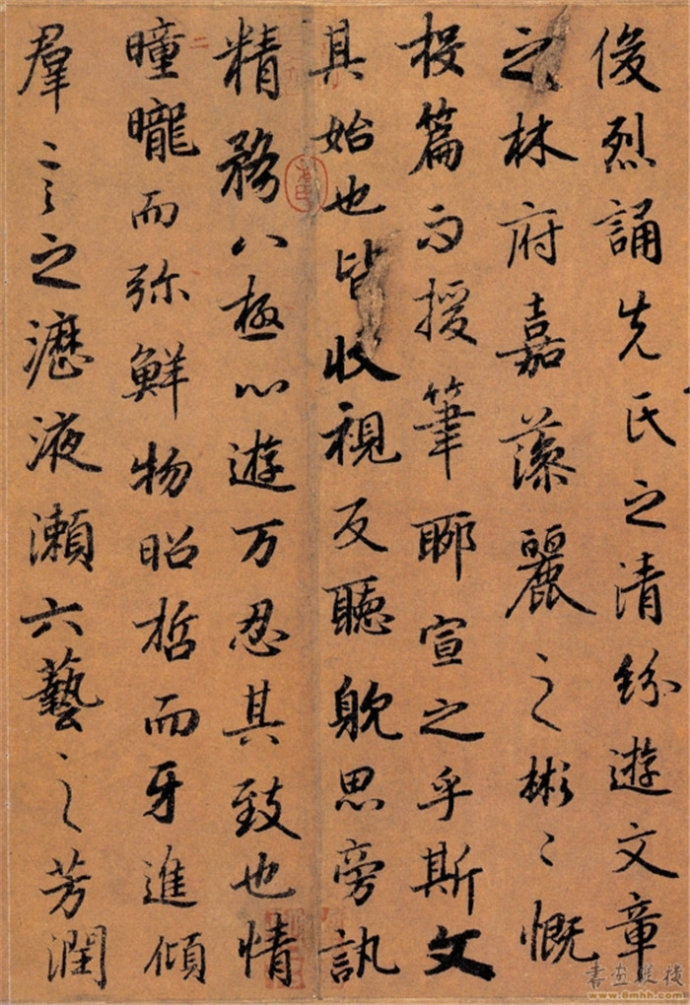 俊烈誦先氏之清紛遊文章
之林府嘉藻麗之彬〻慨
投篇而授筆聊宣之乎斯文
其始也皆收視反聽躭思旁訊
精務八極心遊万忍其致也情
曈曨而弥鮮物昭晢而牙進傾
羣言之瀝液瀨六藝之芳潤
www.8mhh.com